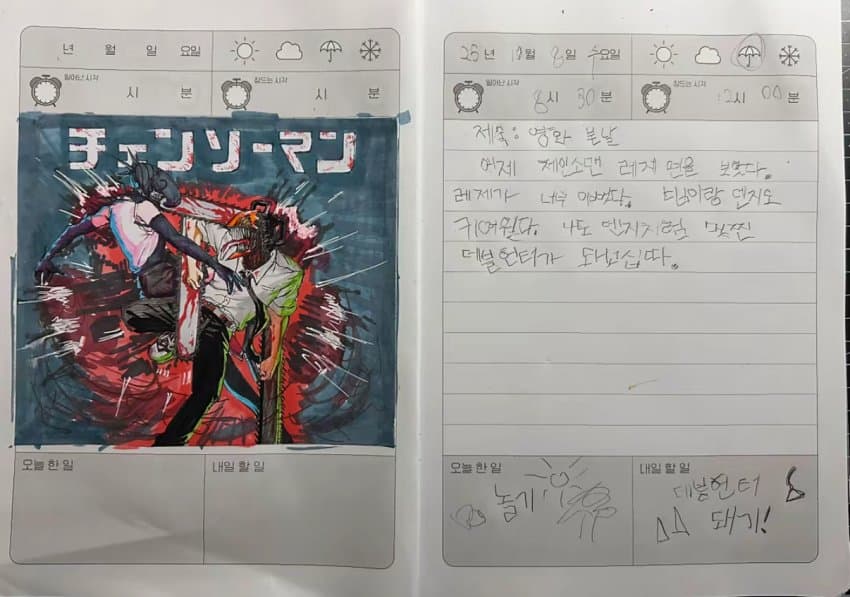 년 월 일 요일
일어난 시각 시 분 잠드는 시각 시 분
チェンソーマン
오늘 한 일 내일 할 일
25년 10월 8일 수요일
일어난 시각 8시 30분 잠드는 시각 12시 00분
제목: 영화 본날
어제 체인소맨 레제 편을 보았다.
레제가 너무 이뻤다. 빔이랑 덴지도
귀여웠다. 나도 덴지처럼 멋찐
데블헌터가 되고십따.
오늘 한 일 내일 할 일
놀기 데블헌터
돼기!